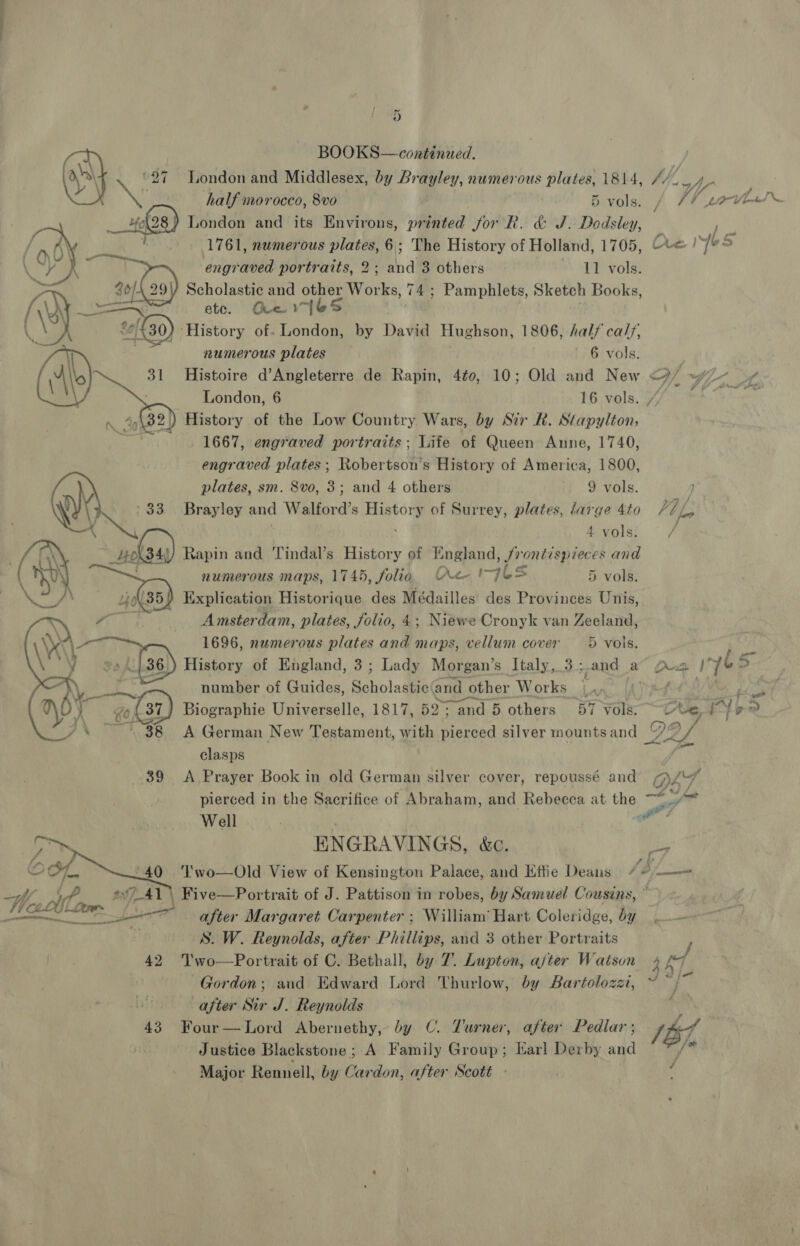 5
BOOKS—continued.
27 London and Middlesex, by Brayley, numerous plates, 1814,
half morocco, 8vo 5 vols.
28 London and its Environs, printed for R. & J. Dodsley,
1761, numerous plates, 6; The History of Holland, 1705,
engraved portraits, 2; and 3 others 11 vols.
29 Scholastic and other Works, 74; Pamphlets, Sketch Books,
etc.
30 History of London, by David Hughson, 1806, half calf,
numerous plates 6 vols.
31 Histoire d'Angleterre de Rapin, 4to, 10; Old and New
London, 6 16 vols.
32 History of the Low Country Wars, by Sir R. Stapylton,
1667, engraved portraits; Life of Queen Anne, 1740,
engraved plates; Robertson's History of America, 1800,
plates, sm. 8vo, 3; and 4 others 9 vols.
33 Brayley and Walford's History of Surrey, plates, large 4to
4 vols.
34 Rapin and Tindal's History of England, frontispieces and
numerous maps, 1745, folio 5 vols.
35 Explication Historique des Médailles des Provinces Unis,
Amsterdam, plates, folio, 4; Niewe Cronyk van Zeeland,
1696, numerous plates and maps, vellum cover 5 vols.
36 History of England, 3; Lady Morgan's Italy, 3; and a
number of Guides, Scholastic and other Works
37 Biographie Universelle, 1817, 52; and 5 others 57 vols.
38 A German New Testament, with pierced silver mounts and
clasps
39 A Prayer Book in old German silver cover, repoussé and
pierced in the Sacrifice of Abraham, and Rebecca at the
Well
ENGRAVINGS, &c.
40 Two—Old View of Kensington Palace, and Effie Deans
41 Five—Portrait of J. Pattison in robes, by Samuel Cousins,
after Margaret Carpenter; William Hart Coleridge, by
S. W. Reynolds, after Phillips, and 3 other Portraits
42 Two—Portrait of C. Bethall, by T. Lupton, after Watson
Gordon; and Edward Lord Thurlow, by Bartolozzi,
after Sir J. Reynolds
43 Four—Lord Abernethy, by C. Turner, after Pedlar;
Justice Blackstone; A Family Group; Earl Derby and
Major Rennell, by Cardon, after Scott